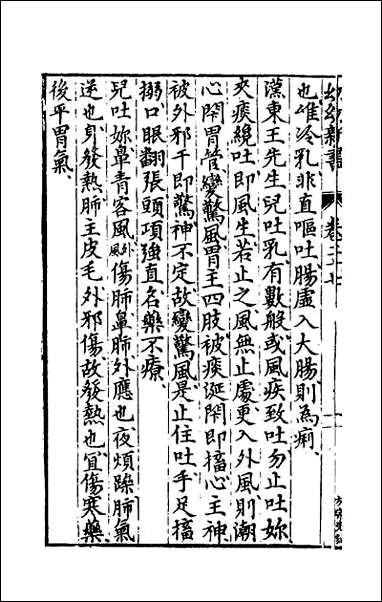 幼幼新書　卷二十七
也雖冷乳非直嘔吐腸虛入大腸則為痢
漢東王先生兒吐乳有數般或風疾致吐勿止吐妳
夾痰纔吐即風生若止之風無止處更入外風則潮
心閉胃管變驚風胃主四肢被痰涎閉即搐心主神
被外邪干即驚神不定故變驚風是止住吐手足搐
搦口眼翻張頭項強直名藥不療
兒吐妳鼻青客風外風傷肺鼻肺外應也夜煩躁肺氣
逆也身發熱肺主皮毛外邪傷故發熱也宜傷寒藥
後平胃氣